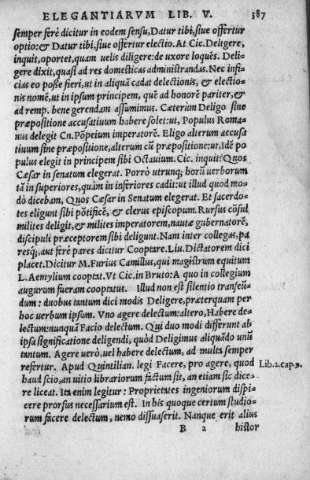 ELEGANTIARVM LIB. V. 387
semper ferè dicitur in eodem sensu, Datur tibi, siue offertur
optio: & Datur tibi, siue offertur electio. At Cic. Deligere,
inquit, oportet, quam uelis diligere: de uxore loquẽs. Deli-
gere dixit, quasi ad res domesticas administrandas. Nec infi-
cias eo posse fieri, ut in aliquã cadat delectionis, & electio-
nis nomẽ, ut in ipsum principem, quẽ ad honorẽ pariter, &
ad remp. bene gerendam assumimus. Cæterùm Deligo sine
præpositione accusatiuum habere solet: ut, Populus Roma-
nus delegit Cn. Põpeium imperatorẽ. Eligo alterum accusa
tiuum sine præpositione, alterum cũ præpositione: ut, Idẽ po
pulus elegit in principem sibi Octauium. Cic. inquit: Quos
Cæsar in senatum elegerat. Porrò utrunq; horũ uerborum
tã in superiores, quàm in inferiores cadit: ut illud quod mo-
dò dicebam, Quos Cæsar in Senatum elegerat. Et sacerdo-
tes eligunt sibi põtificẽ, & clerus episcopum. Rursus cõsul
milites deligit, & milites imperatorem, nautæ gubernatorẽ,
discipuli præceptorem sibi deligunt. Nam inter collegas, pa
resq;, aut ferè pares dicitur Cooptare. Liu. Dictatorem dici
placet. Dicitur M. Furius Camillus, qui magistrum equitum
L. Aemylium cooptat. Vt Cic. in Bruto: A quo in collegium
augurum fueram cooptatus. Illud non est silentio transeũ-
dum: duobus tantum dici modis Deligere, præterquam per
hoc uerbum ipsum. Vno agere delectum: altero, Habere de-
lectum: nunquã Facio delectum. Qui duo modi differunt ab
ipsa significatione deligendi, quòd Deligimus aliquãdo unũ
tantum. Agere uerò, uel habere delectum, ad multos semper
refertur. Apud Quintilian. legi Facere, pro agere, quod Lib. 2. cap. 9.
haud scio, an uitio librariorum factum sit, an etiam sic dice-
re liceat. Ita enim legitur: Proprietates ingeniorum dispi-
cere prorsus necessarium est. In his quoque certum studio-
rum facere delectum, nemo dissuaserit. Nanque erit alius
B 2 histor